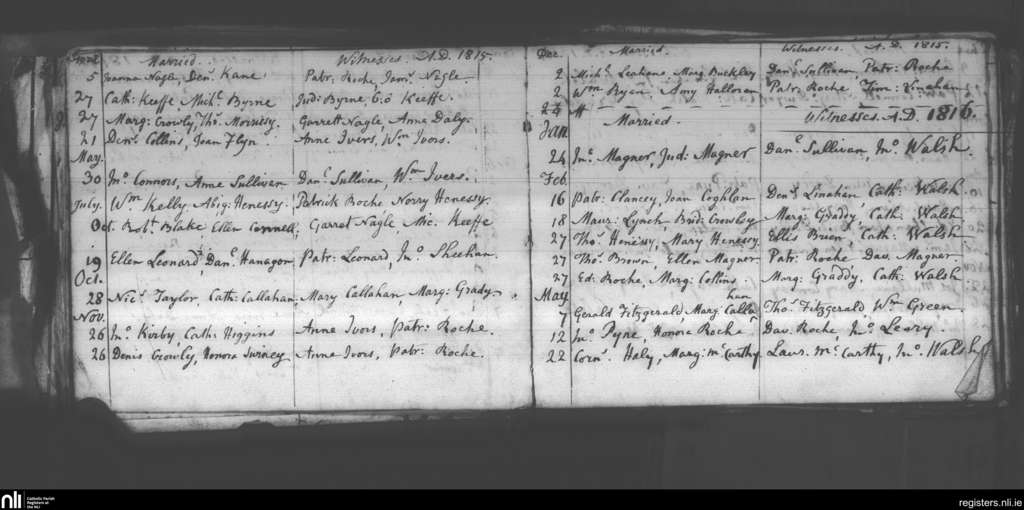 Married. Witnesses A.D. 1815.
5 Joanna Nagle, Den: Kane Patr: Roche, Jam: Nagle.
27 Cath: Keeffe, Mich: Byrne Jud: Byrne, Keeffe.
27 Marg: Crowly, Tho: Garrett Nagle, Anne Daly.
21 Den: Collins, Joan Flyn. Anne Ivers, Wm Ivors.
May.
30 Jno Connors, Anne Sullivan Danl Sullivan, Wm Ivers.
July. Wm Kelly, Abig: Henessy. Patrick Roche Norry Henessy.
Oct. Robt Blake Ellen Connell, Garrot Nagle, Mic. Keeffe
19 Ellen Leonard, Danl Hanagan Patr: Leonard, Jno Sheehan.
Oct.
28 Nics Taylor, Cath: Callahan, Mary Callahan, Marg: Grady.
Nov.
26 Jno Kirby, Cath: Higgins Anne Ivors, Patr: Roche.
26 Denis Crowly, Honora Anne Ivors, Patr: Roche.
Dec. Married. Witnesses. A.D. 1815.
2 Michl Leahane, Marg Buckley Danl Sullivan Patr: Roche
2 Wm Ryan, Amy Halloran Patr: Roche, Tim: Linehan
Jan Married. Witnesses A.D. 1816.
24 Jno Magner, Jud: Magner Danl Sullivan, Jno Walsh.
Feb
16 Patr: Clancey, Joan Coghlan Denl Linehan, Cath: Walsh
18 Maur: Lynch, Brid: Crowley Marg: Graddy, Cath: Walsh
27 Thos Henessy, Mary Henessy Ellis Brien, Cath: Walsh
27 Thos Brown, Ellen Magner Patr: Roche Dav. Magner.
27 Ed. Roche, Marg: Collins Marg: Graddy, Cath: Walsh
May han
7 Gerald Fitzgerald, Mary Calla Thos Fitzgerald, Wm Green.
12 Jno Pyne, Honora Roche Dav. Roche, Jno Leary.
22 Corns. Haly, Marg: McCarthy Laur. McCarthy, Jno Walsh
nli Catholic Parish Registers at the NLI
registers.nli.ie